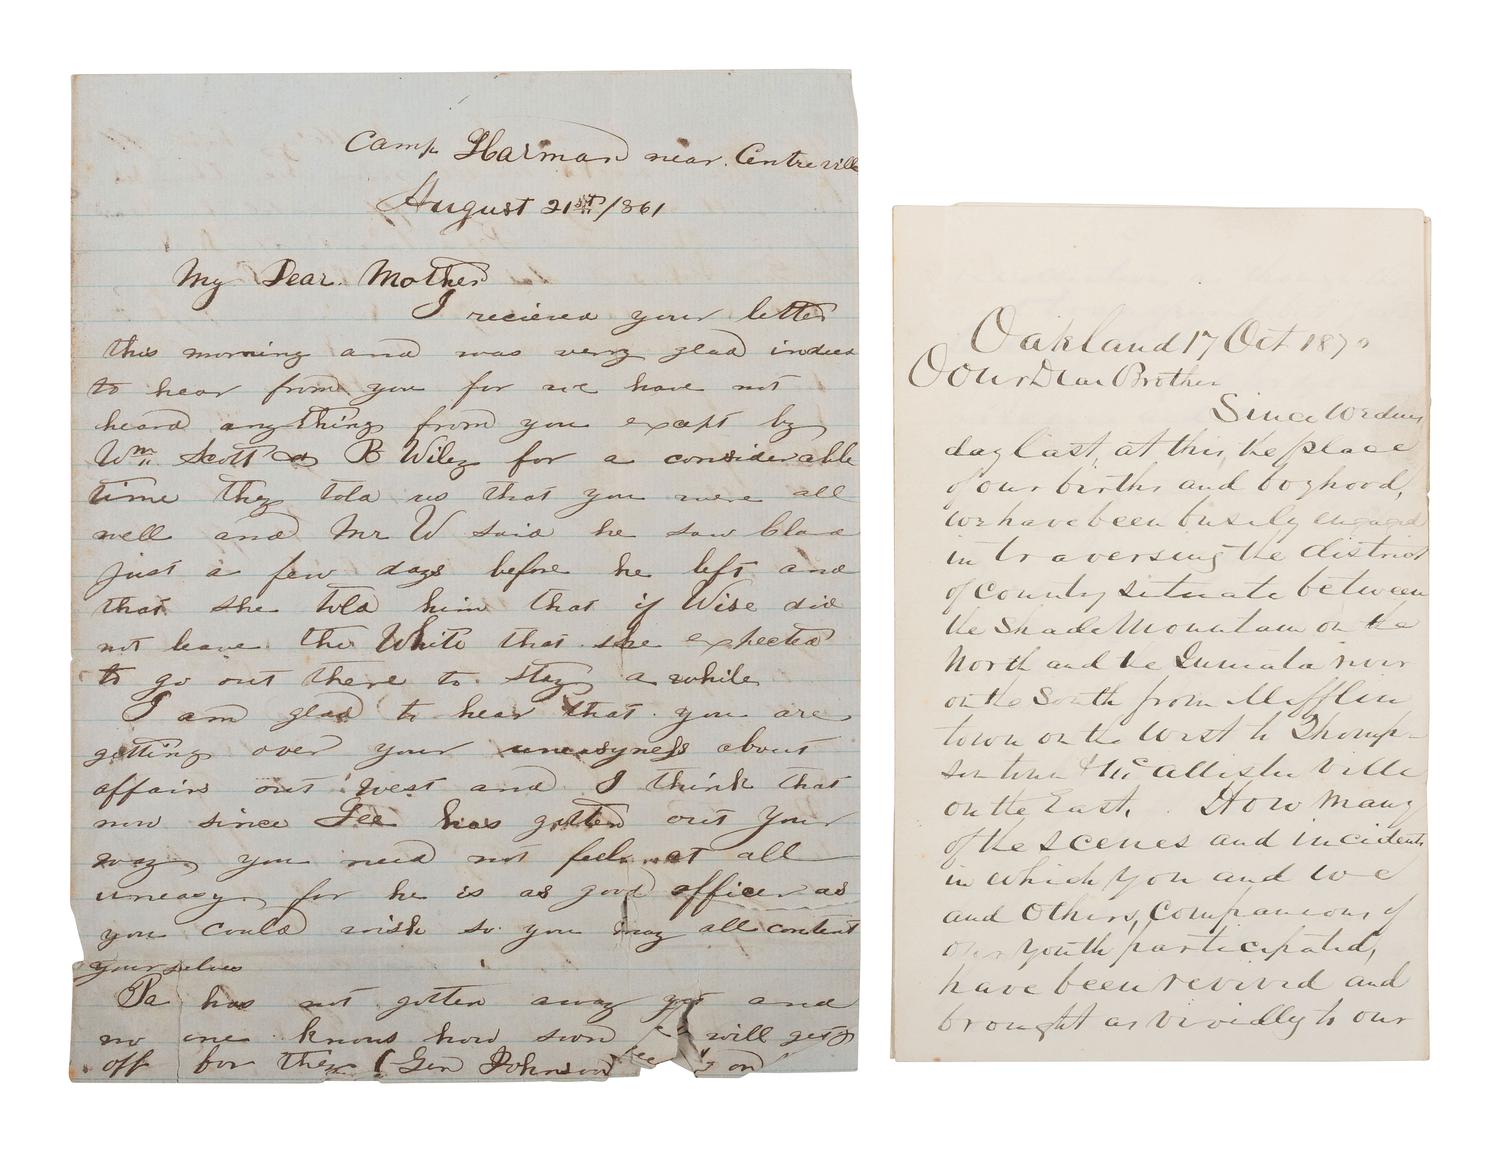 Camp Harman near Centreville
August 21st /861
My Dear Mother
I recieved your letter
this morning and was very glad indeed
to hear from you for we have not
heard any thing from you except by
Wm. Scott & B Wiley for a considerable
time they told us that you were all
well and Mr W said he saw
just a few days before he left and
that she told him that if Wise did
not leave the White that she expected
to go out there to stay a while
I am glad to hear that you are
getting over your uneasyness about
affairs out west and I think that
now since Lee has gotten out your
way you need not feel at all
uneasy for he is as good officer as
you could wish so you may all content
yourselves
Pa has not gotten away yet and
no one knows how soon will get
off for they (Gen Johnson on
Oakland 17 Oct 1870
Our Dear Brother
Since Wednes
day last, at this, the place
of our births and boyhood,
we have been busily engaged
in traversing the district
of County situate between
the Shade Mountain on the
North and the Juniata river
on the South from Mifflin
town on the West to Thomp-
sontown & McAllisterville
on the East. How many
of the scenes and incidents
in which you and we
and others, companions of
our youth participated,
have been revived and
brought as vividly to our